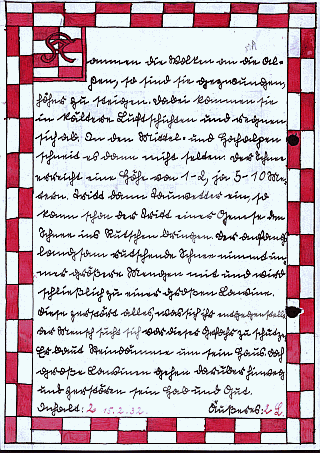 Kommen die Wolken an die Al-
pen, so sind sie gezwungen,
höher zu steigen. Dabei kommen sie
in kältere Luftschichten und regnen
sich ab. In den Mittel- und Hochalpen
schneit es dann nicht selten. Der Schnee
erreicht eine Höhe von 1-2, ja 5-10 Me-
tern. Tritt dann Tauwetter ein, so
kann schon der Tritt einer Gemse den
Schnee ins Rutschen bringen. Der anfangs
langsam rutschende Schnee nimmt im-
mer größere Mengen mit und wird
schließlich zu einer großen Lawine.
Diese zerstört alles, was sich ihr entgegenstellt.
Der Mensch sucht sich vor dieser Gefahr zu schützen.
Er baut Steindämme um sein Haus, doch
große Lawinen gehen darüber hinweg
und zerstören sein Hab und Gut.
Inhalt: 2 15.2.32. Äußeres: 2